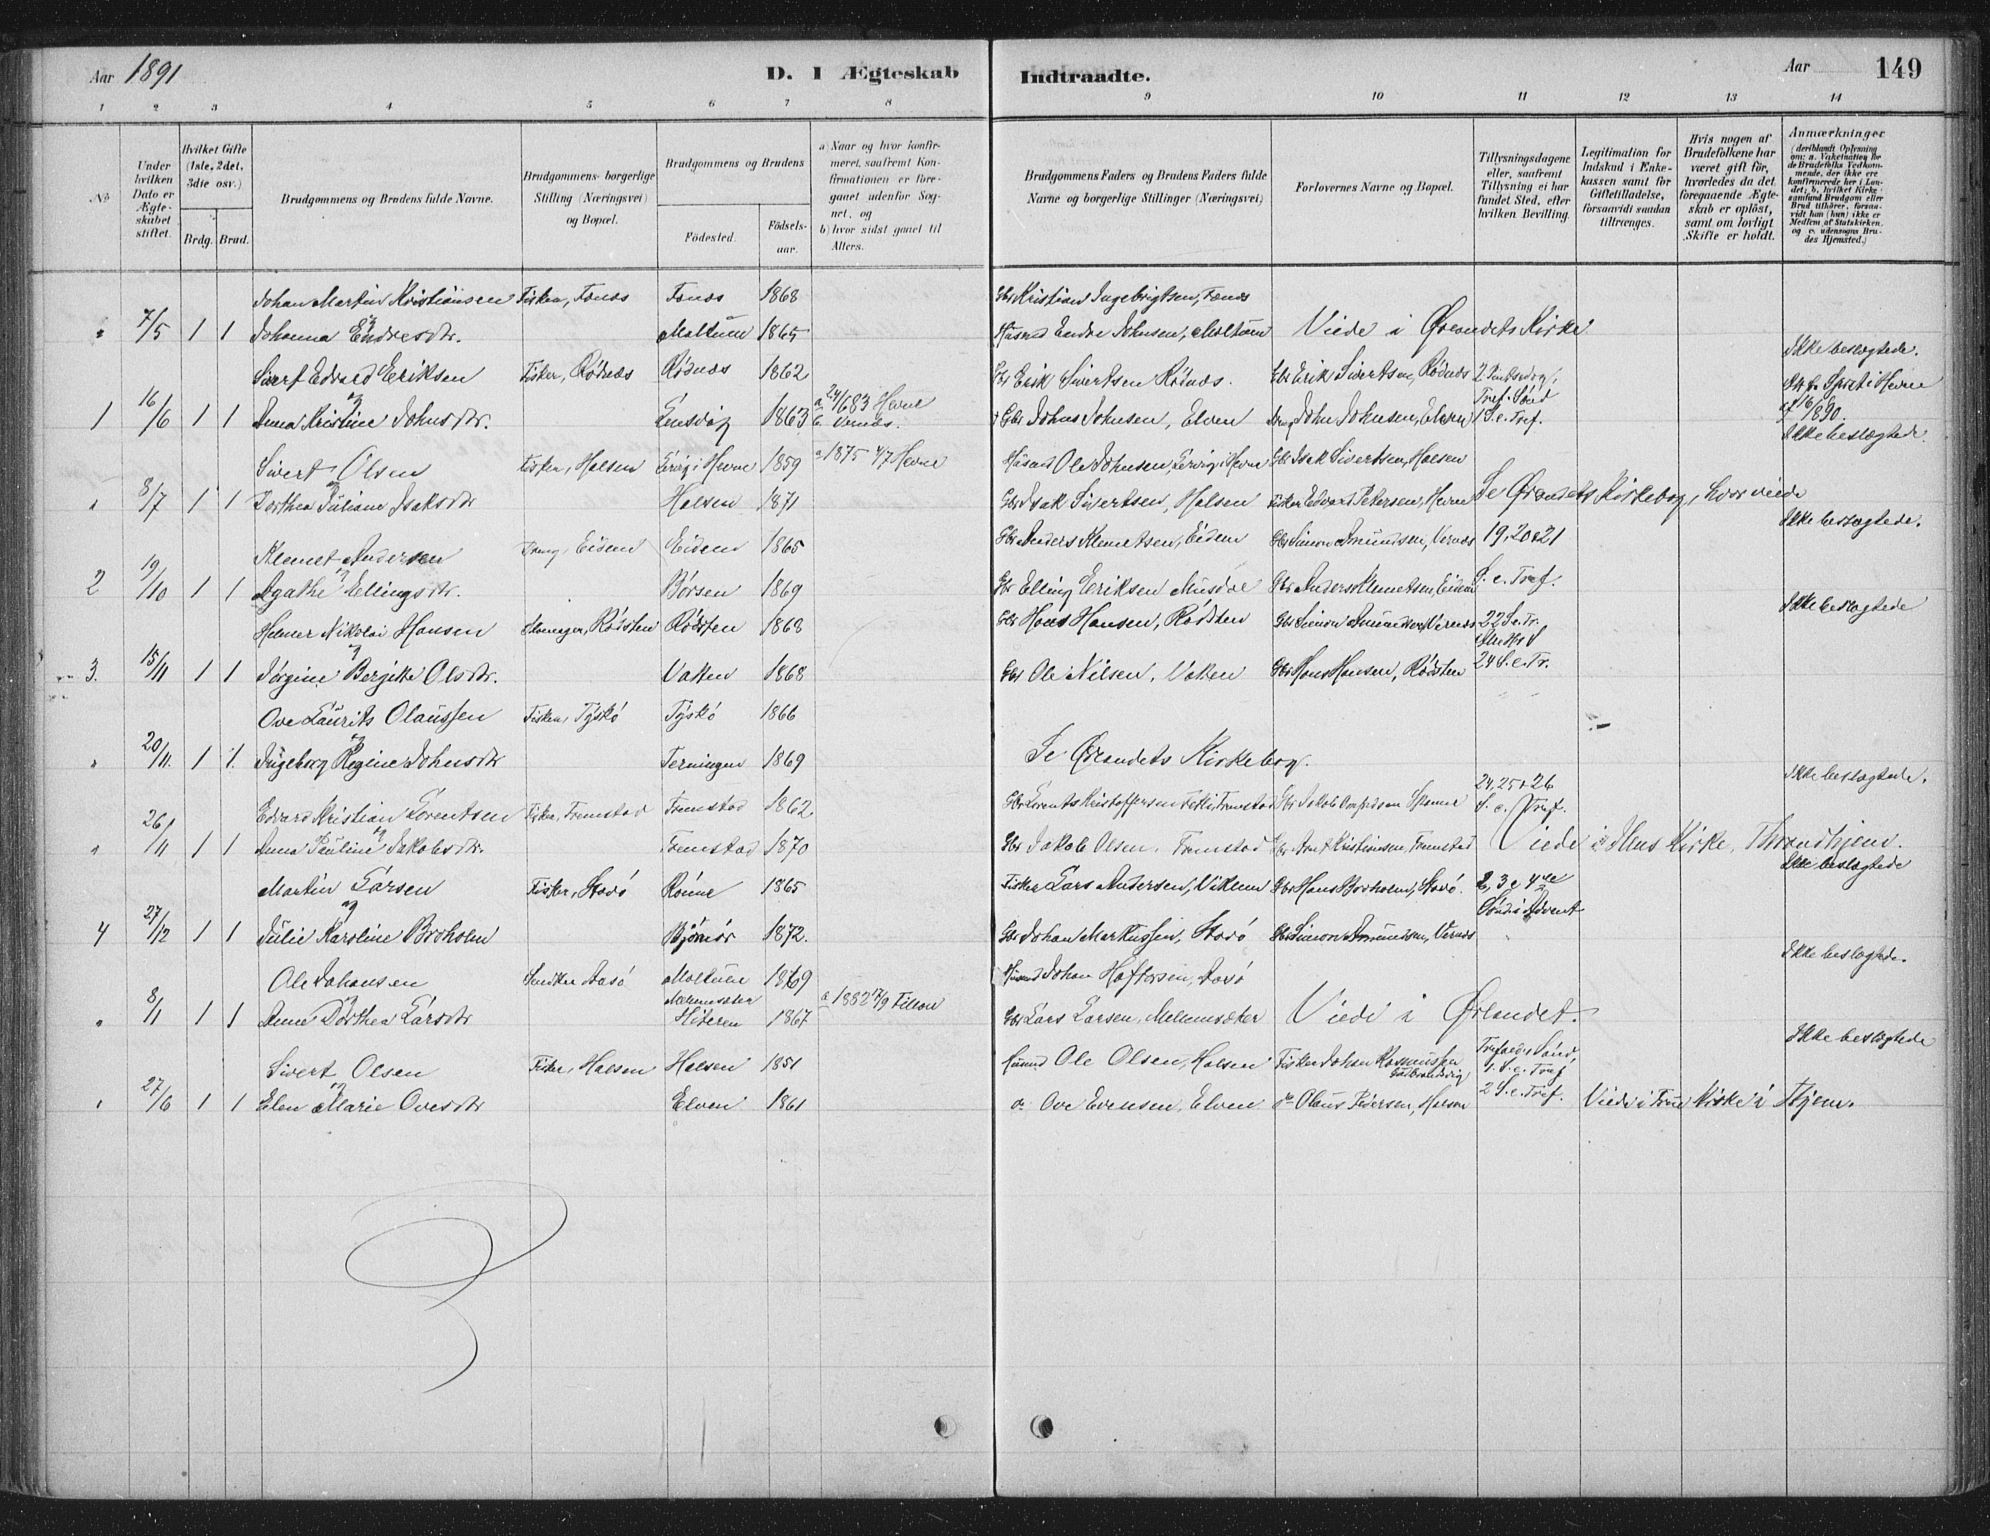 Aar 1891
D. I Ægteskab Indtraadte.
Aar 149
1 2 3 4 5 6 7 8 9 10 11 12 13 14
No
Under hvilken Dato er Ægteskabet stiftet.
Hvilket Gifte (1ste, 2det, 3die osv.)
Brdg. Brud.
Brudgommens og Brudens fulde Navne.
Brudgommens borgerlige Stilling (Næringsvei) og Bopæl.
Brudgommens og Brudens
Fødested.
Fødselsaar.
a) Naar og hvor konfirmeret, saafremt Konfirmationen er foregaaet udenfor Sognet, og
b) hvor sidst gaaet til Alters.
Brudgommens Faders og Brudens Faders fulde Navne og borgerlige Stillinger (Næringsvei)
Forlovernes Navne og Bopæl.
Tillysningsdagene eller, saafremt Tillysning ei har fundet Sted, efter hvilken Bevilling.
Legitimation for Indskud i Enkekassen samt for Giftetilladelse, forsaavidt saadan tiltrænges.
Hvis nogen af Brudefolkene har været gift før, hvorledes da det foregaaende Ægteskab er opløst, samt om lovligt Skifte er holdt.
Anmærkninger (deriblandt Oplysning om: a. Vakcination for de Brudefolks Vedkommende, der ikke ere konfirmerede her i Landet; b. hvilket Kirkesamfund Brudgom eller Brud tilhører, forsaavidt han (hun) ikke er Medlem af Statskirken, og c. udensogns Brudes Hjemsted.)
Johan Martin Kristiansen Fisker, Fænes Fænes 1868 Gbr Kristian Ingebrigtsen, Fænes
" 7/5 1 1 Johanna Endresdtr. Moltum 1865 Husmd Endre Johnsen, Moltum Viede i Ørlandets Kirke
Ikke beslægtede.
Sivert Edvard Eriksen Fisker, Rødnæs Rødnæs 1862 Gbr Erik Sivertsen Rødnæs. Gbr Erik Sivertsen, Rødnæs 2 Pintsedag, Tref. Sønd
1 16/6 1 1 Anna Kristine Johnsdtr. Lensvig 1863 a 24/6 83 Hevne b. Vernæs. Gbr Johns Johnsen, Elven John Johnsen, Elven 1 S. e. Tref.
Ikke beslægtede
Sivert Olsen Fisker, Holsen Hevne 1859 a 1875 4/7 Hevne Husmd Ole Johnsen, Hevne Gbr Isak Sivertsen, Holsen
" 8/7 1 1 Dorthea Juliane Isaksdtr Holsen 1871 Gbr Isak Sivertsen, Holsen Fisker Edvard Petersen, Hevne Se Ørlandets Kirkebog, hvor viede
Ikke beslægtede.
Klemet Andersen Eidem Eidem 1865 Gbr Anders Klemetsen, Eidem Gbr Simon Amundsen, Vernæs 19, 20 & 21
2 19/10 1 1 Agathe Ellingsdtr. Børsen 1869 Gbr Elling Eriksen Gbr Anders Klemetsen, Eidem S. e. Tref.
Ikke beslægtede
Helmer Nikolai Hansen Rødsten Rødsten 1868 Gbr Hans Hansen, Rødsten Gbr Simon Amundsen, Vernæs 22 S. e. Tr.
3. 15/11 1 1 Jørgine Bergitte Olsdtr. Vatten 1868 Gbr Ole Nilsen, Vatten Gbr Hans Hansen, Rødsten 24 S. e. Tr.
Ove Laurits Olaussen Fisker, Tyskø Tyskø 1866
" 20/11. 1 1. Ingeborg Regine Johnsdtr Terningen 1869 Se Ørlandets Kirkebog.
Ikke beslægtede.
Edvard Kristian Lorentsen Fisker, Fremstad Fremstad 1862 Gbr Lorents Kristoffersen Fremstad Gbr Jakob 24, 25 & 26 S. e. Tref.
" 26/11 1 1 Anna Pauline Jakobsdtr. Fremstad 1870 Gbr Jakob Olsen, Fremstad Gbr Kristiansen, Fremstad Viede i Ilens Kirke, Throndhjem.
Ikke beslægtede
Martin Larsen Fisker, Storø Rømme 1865 Fisker Lars Andersen, Viklem Gbr Hans Broholm, Storø. 2, 3 & 4de Sønd i Advent
4 27/12 1 1 Julie Karoline Broholm Bjørnør 1872. Gbr Johan Markussen, Storø Gbr Simon Amundsen, Vernæs
Ikke beslægtede.
Ole Johansen Moltum 1869 Husmd Johan
" 8/1 1 1 Anne Dorthea Larsdtr Hiteren 1867 a 1882 17/9 Fillan Gbr Lars Larsen, Viede i Ørlandet.
Ikke beslægtede
Sivert Olsen Fisker, Holsen Holsen 1851 Husmd Ole Olsen, Holsen Fisker Johan Rasmussen Trefold. Sønd, 1. S. e. Tref
" 27/6 1 1 Elen Marie Ovesdtr Elven 1861 do Ove Evensen, Elven do Olaus Pedersen, Holsen 2 S. e. Tref. Viede i Frue Kirke i Thjem.